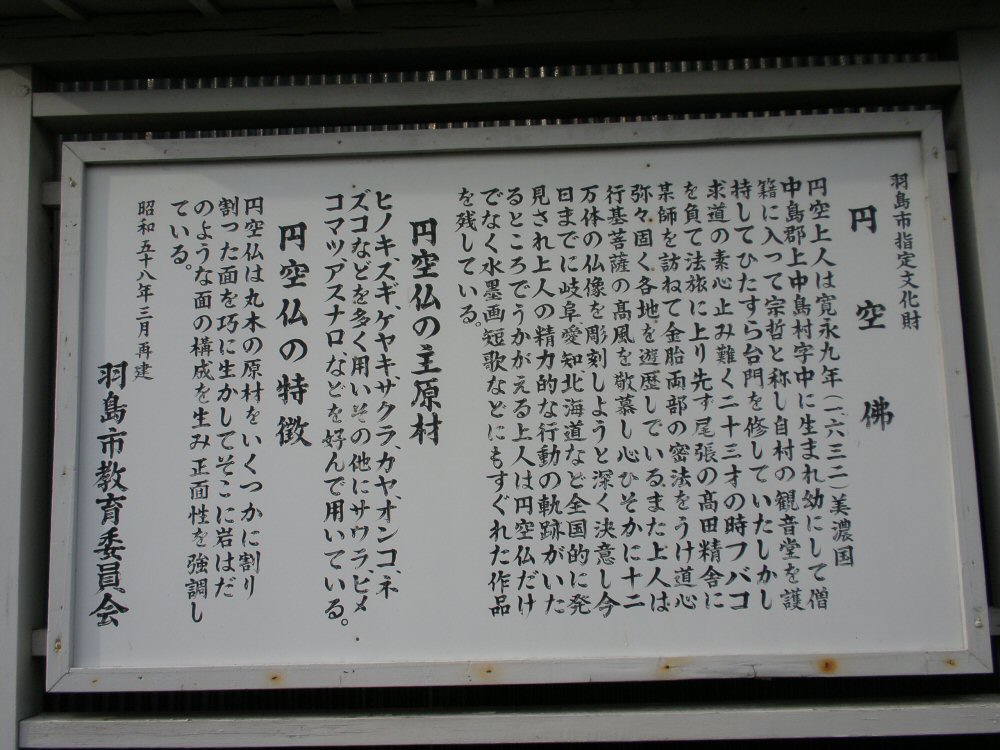 羽島市指定文化財
円空佛
円空上人は寛永九年(一六三二)美濃国
中島郡上中島村字中に生まれ幼にして僧
籍に入って宗哲と称し自村の観音堂を護
持してひたすら台門を修していたしかし
求道の素心止み難く二十三才の時フバコ
を負て法旅に上り先ず尾張の高田精舎に
某師を訪ねて金胎両部の密法をうけ道心
弥々固く各地を遊歴しでいるまた上人は
行基菩薩の高風を敬慕し心ひそかに十二
万体の仏像を彫刻しようと深く決意し今
日までに岐阜、愛知、北海道など全国的に発
見され上人の精力的な行動の軌跡がいた
るところでうかがえる上人は円空仏だけ
でなく水墨画、短歌などにもすぐれた作品
を残している。
円空仏の主原材
ヒノキ、スギ、ケヤキサクラ、カヤ、オンコ、ネ
ズコなどを多く用いその他にサワラ、ヒメ
コマツ、アスナロなどを好んで用いている。
円空仏の特徴
円空仏は丸木の原材をいくつかに割り
割った面を巧に生かしてそこに岩はだ
のような面の構成を生み正面性を強調し
ている。
昭和五十八年三月再建
羽島市教育委員会